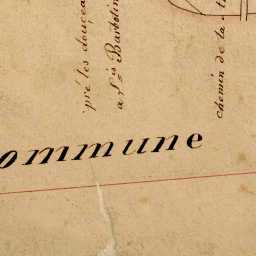 pré les douçea
a Ls Barbotin
chemin de la
ommune